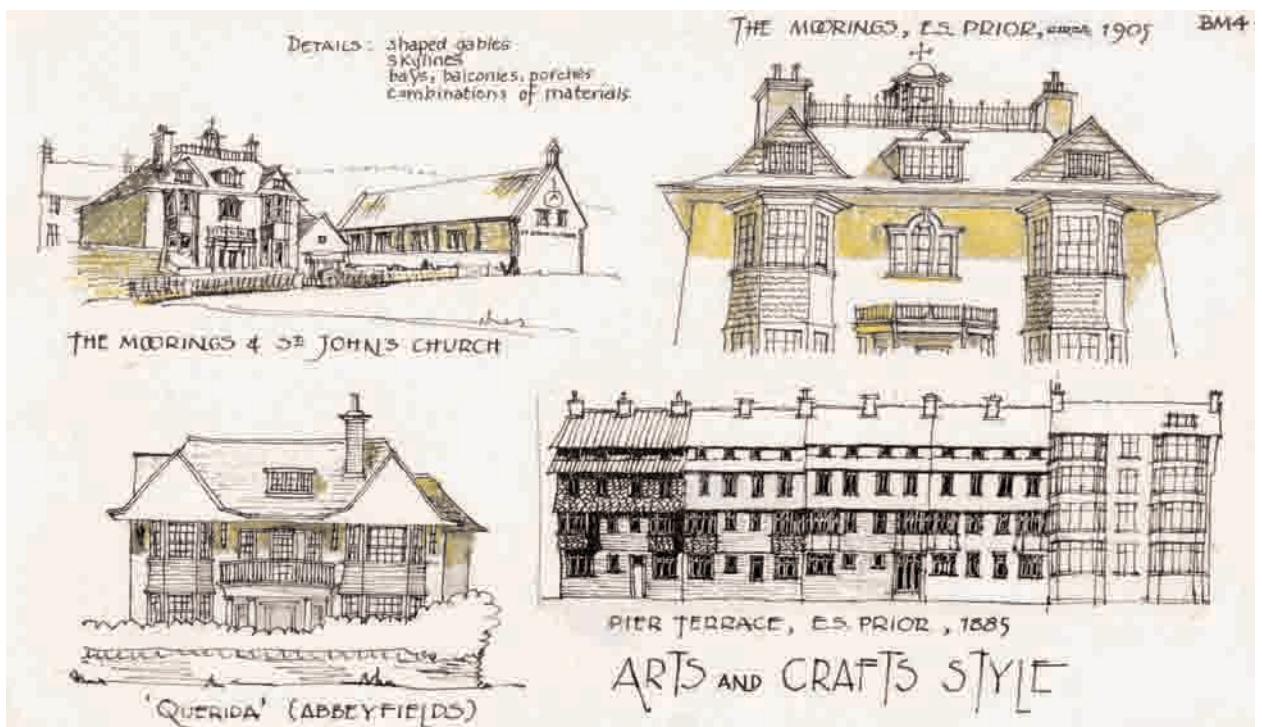 DETAILS: shaped gables
skylines
bays, balconies, porches
combinations of materials
THE MOORINGS, E.S. PRIOR, circa 1905
BM4
THE MOORINGS & ST JOHN'S CHURCH
PIER TERRACE, E.S. PRIOR, 1885
'QUERIDA' (ABBEYFIELDS)
ARTS AND CRAFTS STYLE